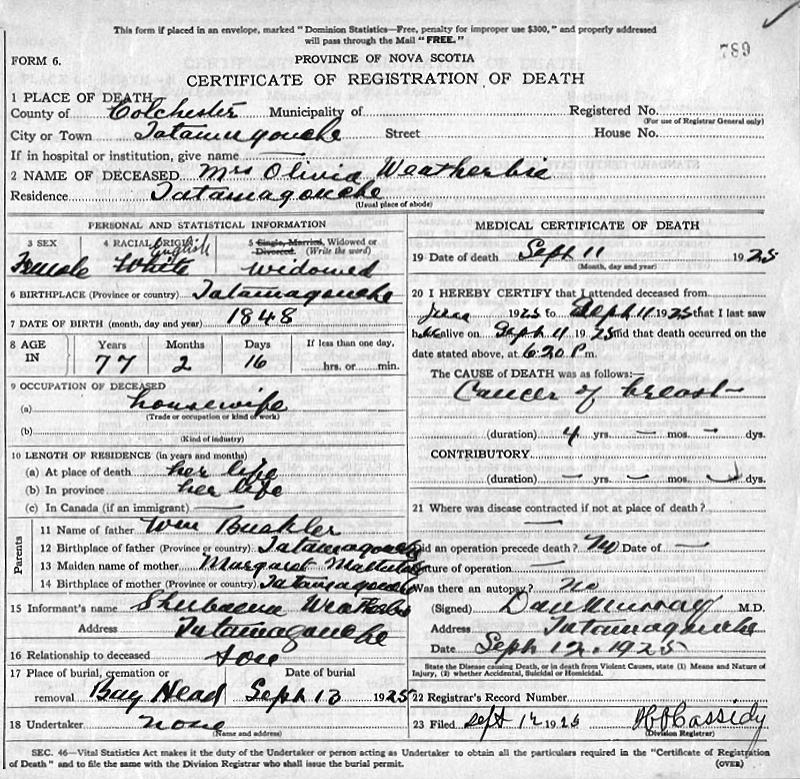 This form if placed in an envelope, marked "Dominion Statistics—Free, penalty for improper use $300," and properly addressed
will pass through the Mail "FREE."
789
FORM 6.
PROVINCE OF NOVA SCOTIA
CERTIFICATE OF REGISTRATION OF DEATH
1 PLACE OF DEATH
County of Colchester Municipality of Registered No.
(For use of Registrar General only)
City or Town Tatamagouche Street House No.
If in hospital or institution, give name —
2 NAME OF DECEASED Mrs Olivia Weatherbie
Residence Tatamagouche
(Usual place of abode)
PERSONAL AND STATISTICAL INFORMATION
3 SEX 4 RACIAL ORIGIN 5 Single, Married, Widowed or Divorced. (Write the word)
English
Female White Widowed
6 BIRTHPLACE (Province or country) Tatamagouche
7 DATE OF BIRTH (month, day and year) 1848
8 AGE IN Years Months Days If less than one day,
77 2 16 hrs. or min.
9 OCCUPATION OF DECEASED
(a) housewife
(Trade or occupation or kind of work)
(b)
(Kind of industry)
10 LENGTH OF RESIDENCE (in years and months)
(a) At place of death her life
(b) In province her life
(c) In Canada (if an immigrant) —
Parents
11 Name of father Wm Buckler
12 Birthplace of father (Province or country) Tatamagouche
13 Maiden name of mother Margaret
14 Birthplace of mother (Province or country) Tatamagouche
15 Informant's name Weatherbie
Address Tatamagouche
16 Relationship to deceased son
17 Place of burial, cremation or removal Date of burial
Bay Head Sept 13 1925
18 Undertaker none
(Name and address)
MEDICAL CERTIFICATE OF DEATH
19 Date of death Sept 11 1925
(Month, day and year)
20 I HEREBY CERTIFY that I attended deceased from
June 1925 to Sept 11 1925 that I last saw
her alive on Sept 11 1925 and that death occurred on the
date stated above, at 6.20 P m.
The CAUSE of DEATH was as follows:—
Cancer of breast
(duration) 4 yrs. — mos. — dys.
CONTRIBUTORY
(duration) — yrs. — mos. dys.
21 Where was disease contracted if not at place of death?
—
Did an operation precede death? No Date of —
Nature of operation —
Was there an autopsy? no
(Signed) Dan Murray M.D.
Address Tatamagouche
Date Sept 12. 1925
State the Disease causing Death, or in death from Violent Causes, state (1) Means and Nature of
Injury, (2) whether Accidental, Suicidal or Homicidal.
22 Registrar's Record Number
23 Filed Sept 12 1925 Cassidy
(Division Registrar)
SEC. 46—Vital Statistics Act makes it the duty of the Undertaker or person acting as Undertaker to obtain all the particulars required in the "Certificate of Registration
of Death" and to file the same with the Division Registrar who shall issue the burial permit. (OVER)